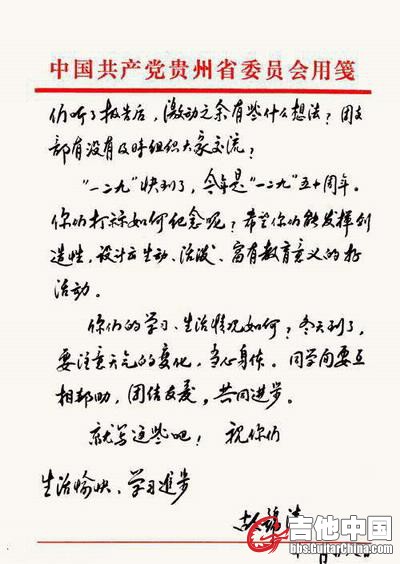 中国共产党贵州省委员会用笺
们听了报告后，激动之余有些什么想法？团支
部有没有及时组织大家交流？
“一二九”快到了，今年是“一二九”五十周年。
你们打算如何纪念呢？希望你们能发挥创
造性，设计出生动、活泼、富有教育意义的好
活动。
你们的学习、生活情况如何？冬天到了，
要注意天气的变化，当心身体。同学间要互
相帮助，团结友爱，共同进步。
就写这些吧！祝你们
生活愉快、学习进步
胡锦涛
吉他中国
bbs.GuitarChina.com